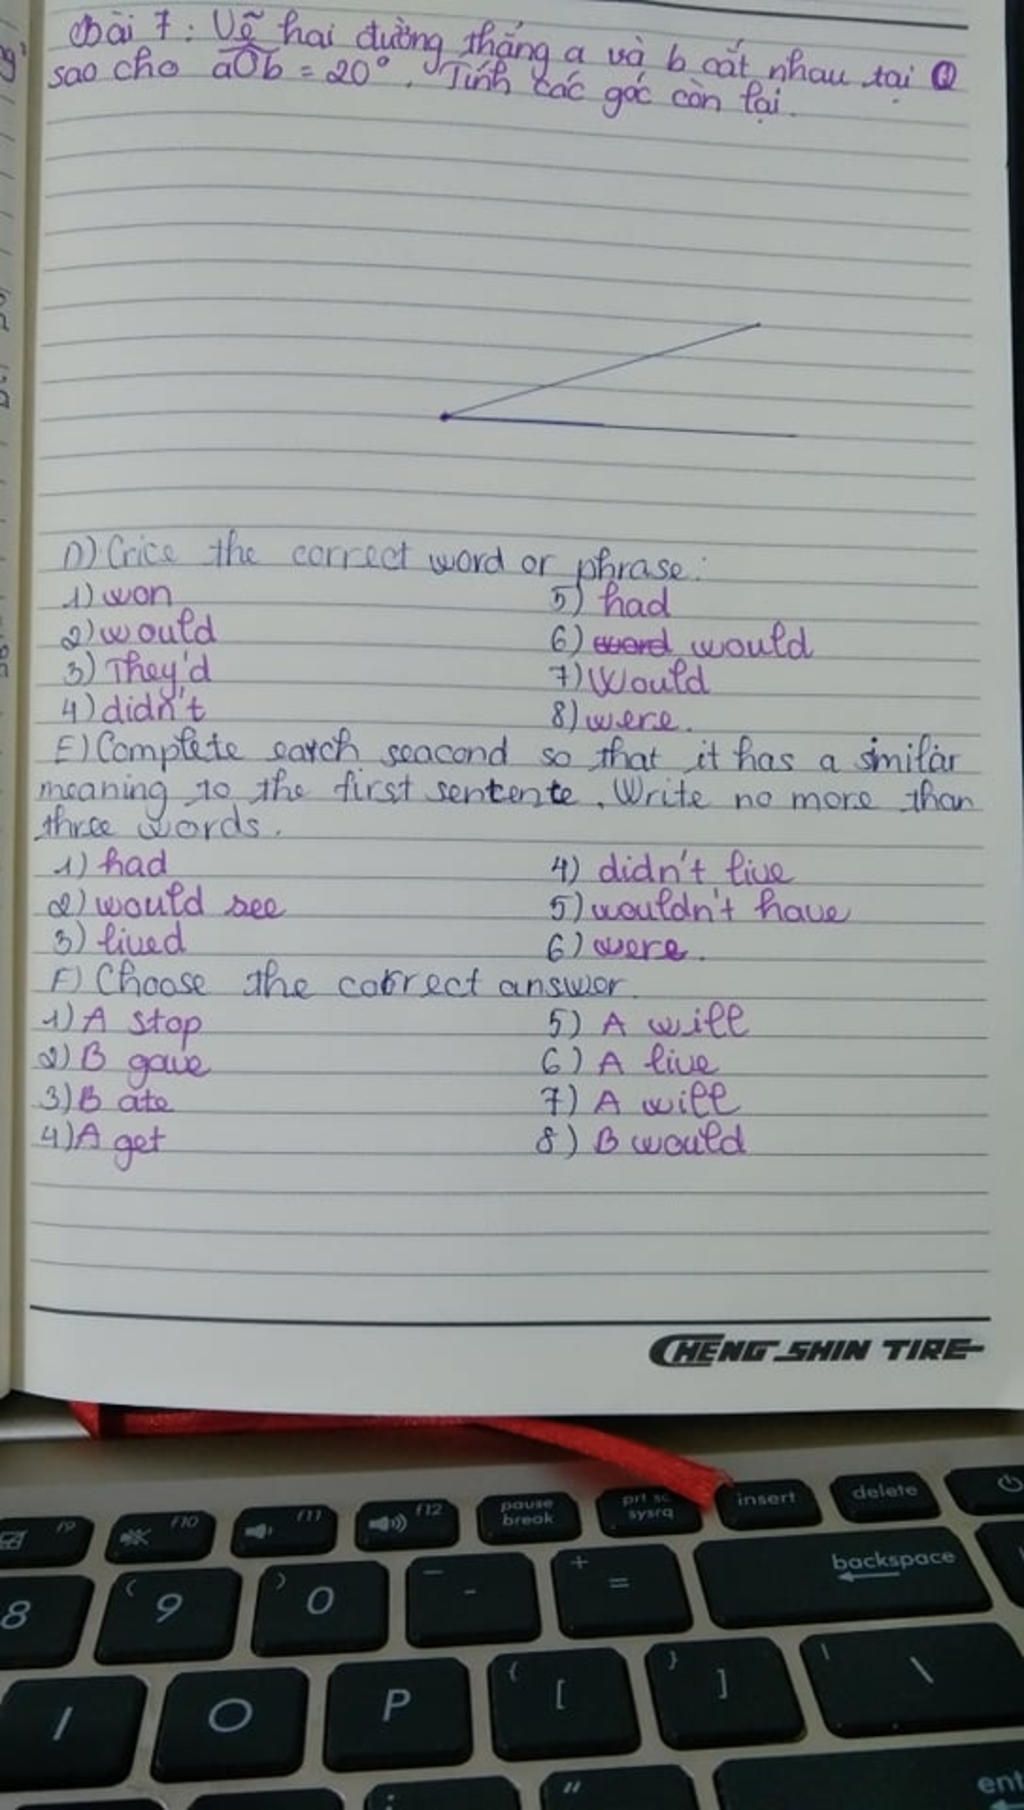 Bài 7: Vẽ hai đường thẳng a và b cắt nhau tại O
sao cho aOb = 20°. Tính các góc còn lại.
D) Crice the correct word or phrase:
1) won
5) had
2) would
6) would
3) They'd
7) Would
4) didn't
8) were.
E) Complete earch seacond so that it has a similar
meaning to the first sentente. Write no more than
three words.
1) had
4) didn't live
2) would see
5) wouldn't have
3) lived
6) were.
F) Choose the correct answer
1) A stop
5) A will
2) B gave
6) A live
3) B ate
7) A will
4) A get
8) B would
CHENG SHIN TIRE
f9 f10 f11 f12 pause break prt sc sysrq insert delete
8 ( 9 ) 0 — - + = backspace
I O P { [ } ] | \
: " ent